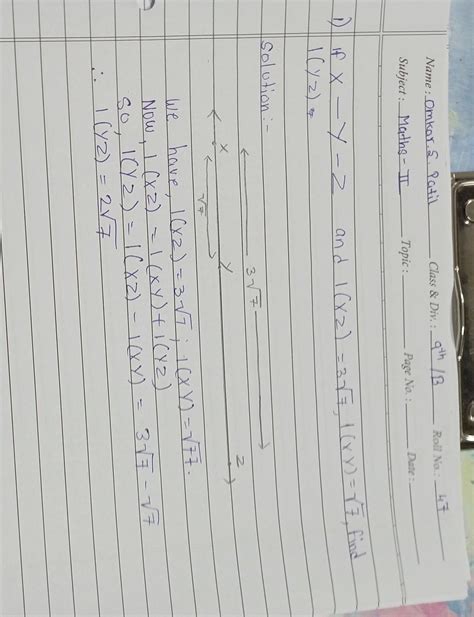 Name : Omkar. S. Patil Class & Div. : 9th /B Roll No. : 47
Subject : Maths - II Topic : Page No. : Date :
1) If X - Y - Z and l(XZ) = 3√7, l(XY) = √7, find
l(YZ) =
Solution :-
3√7
X Y Z
√7
We have, l(XZ) = 3√7 ; l(XY) = √7.
Now, l(XZ) = l(XY) + l(YZ)
So, l(YZ) = l(XZ) - l(XY) = 3√7 - √7
∴ l(YZ) = 2√7